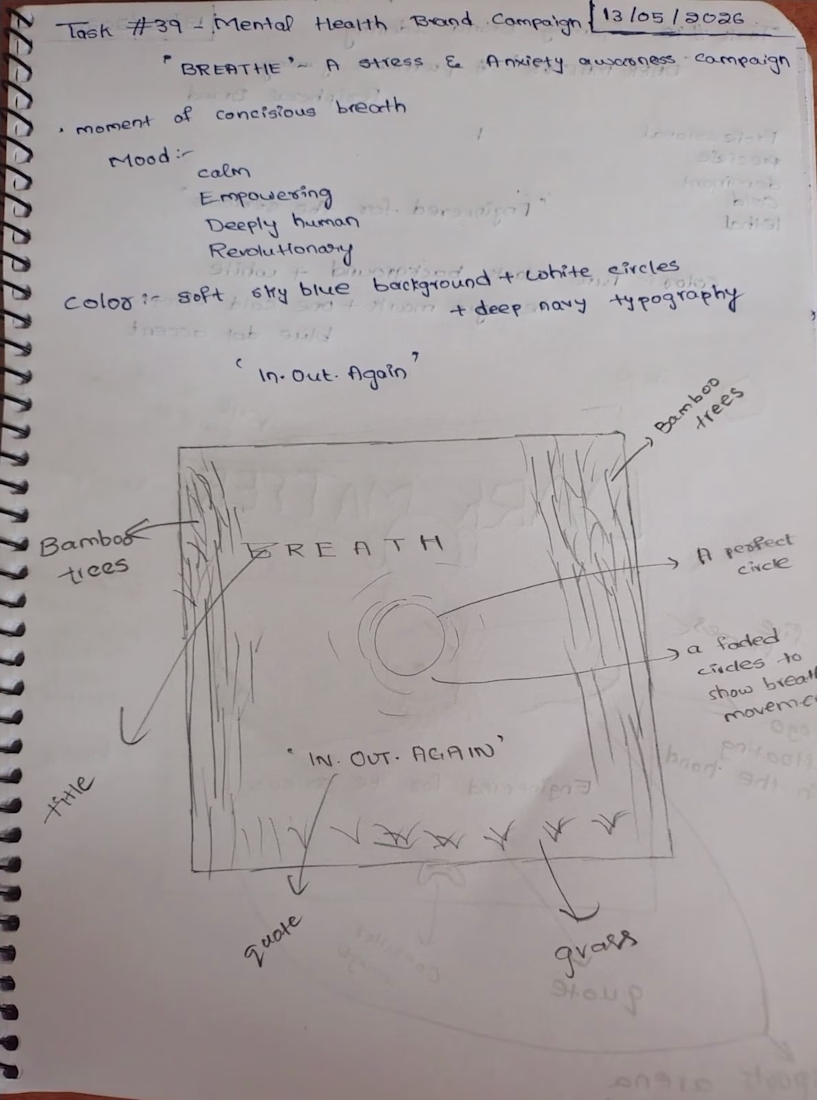 Task #39 - Mental Health Brand Campaign 13/05/2026
"BREATHE" - A stress & Anxiety awarness campaign
. moment of concisious breath
Mood :-
calm
Empowering
Deeply human
Revolutionary
Color :- soft sky blue background + white circles
+ deep navy typography
"In. Out. Again"
Bamboo
trees
Bamboo
trees
BREATH
A perfect
circle
a faded
circles to
show breath
"IN. OUT. AGAIN"
title
quote
grass